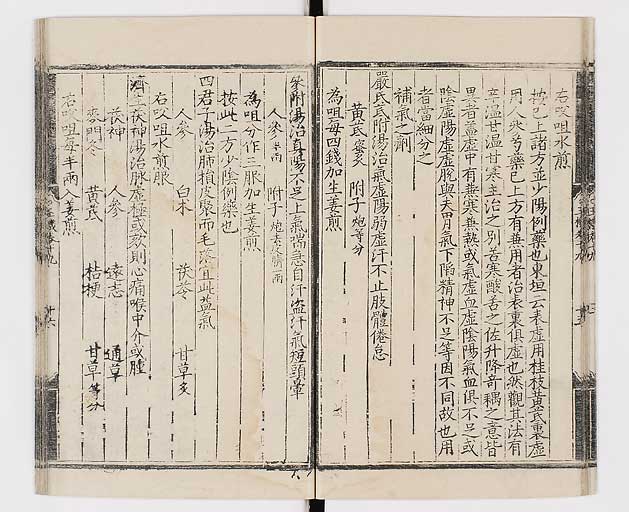 右㕮咀水煎
按已上諸方並少陽例藥也東垣云表虛用桂枝黃芪裏虛
用人參芍藥已上方有兼用者治表裏俱虛也然觀其法有
辛溫甘溫甘寒主治之別苦寒酸苦之佐升降竒耦之意皆
畢者葢虛中有兼寒兼熱或氣虛血虛陰陽氣血俱不足或
陰虛陽虛虛脫與夫胃氣下陷精神不足等因不同故也用
者當細分之
補氣之劑
嚴氏芪附湯治氣虛陽弱虛汗不止肢體倦怠
黃芪蜜炙 附子炮等分
為㕮咀每四錢加生姜煎
參附湯治真陽不足上氣喘急自汗盗汗氣短頭暈
人參半兩 附子炮去皮臍一兩
為㕮咀分作三服加生姜煎
按此二方少陰例藥也
四君子湯治肺損皮聚而毛落宜此益氣
人參 白朮 茯苓 甘草炙
右㕮咀水煎服
濟生茯神湯治脉虛極或欬則心痛喉中介或腫
茯神 人參 遠志 通草
麥門冬 黃芪 桔梗 甘草等分
右㕮咀每半兩入姜煎